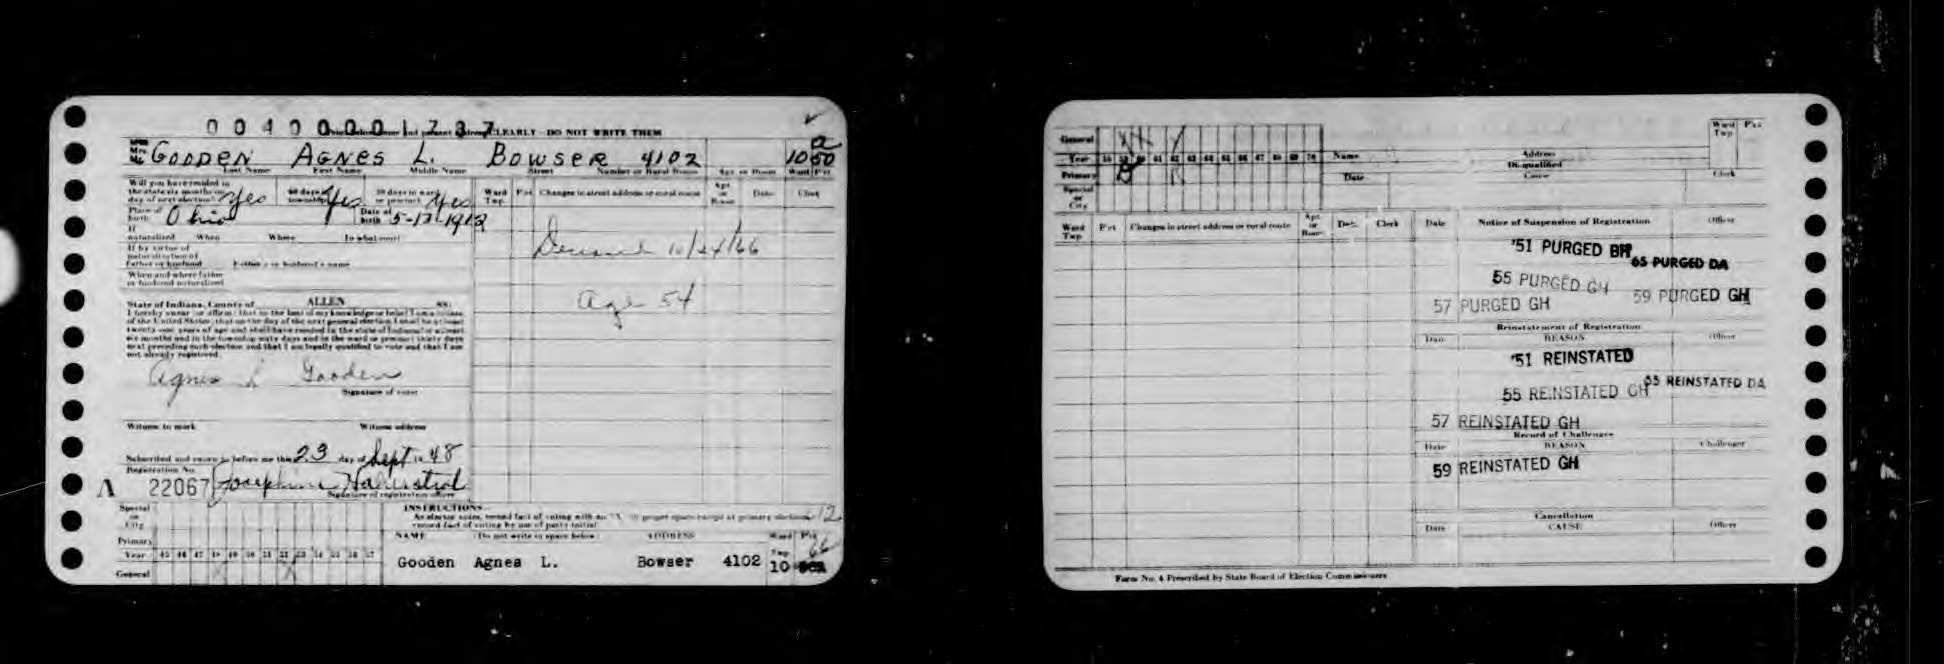 0 0 4 0 0 0 0 1 7 3 7 CLEARLY - DO NOT WRITE THEM
Mrs. GOODEN AGNES L. BOWSER 4102 1050 a
Last Name First Name Middle Name Street Number or Rural Route Apt. or Room Ward Pct
Will you have resided in
the state six months on
day of next election? Yes 60 days in township Yes 30 days in ward or precinct Yes
Ward Twp. Pct Changes in street address or rural route Apt. or Room Date Clerk
Place of birth Ohio Date of birth 5-13-1912
If naturalized When Where In what court
Deceased 10/24/66
If by virtue of
naturalization of
father or husband Father's or husband's name
When and where father
or husband naturalized
Age 54
State of Indiana, County of ALLEN SS:
I hereby swear (or affirm) that to the best of my knowledge or belief I am a citizen
of the United States; that on the day of the next general election I shall be at least
twenty-one years of age and shall have resided in the state of Indiana for at least
six months and in the township sixty days and in the ward or precinct thirty days
next preceding such election and that I am legally qualified to vote and that I am
not already registered.
Agnes L Gooden
Signature of voter
Witness to mark Witness address
Subscribed and sworn to before me this 23 day of Sept 19 48
Registration No.
A 22067 Josephine
Signature of registration officer
Special or City
Primary
Year 45 46 47 48 49 50 51 52 53 54 55 56 57
General
INSTRUCTIONS—
As elector votes, record fact of voting with an "X" in proper space except at primary election 12
record fact of voting by use of party initial
NAME (Do not write in space below) ADDRESS Ward Twp. Pct
66
Gooden Agnes L. Bowser 4102 10
General
Year 58 59 60 61 62 63 64 65 66 67 68 69 70 Name Address
Ward Twp Pct
Disqualified
Primary R R Date Cause Clerk
Special or City
Ward Twp. Pct Changes in street address or rural route Apt. or Room Date Clerk
Date Notice of Suspension of Registration Officer
'51 PURGED BH
65 PURGED DA
55 PURGED GH
59 PURGED GH
57 PURGED GH
Reinstatement of Registration
Date REASON Officer
'51 REINSTATED
55 REINSTATED GH
65 REINSTATED DA
57 REINSTATED GH
Record of Challenges
Date REASON Challenger
59 REINSTATED GH
Cancellation
Date CAUSE Officer
Form No. 4 Prescribed by State Board of Election Commissioners